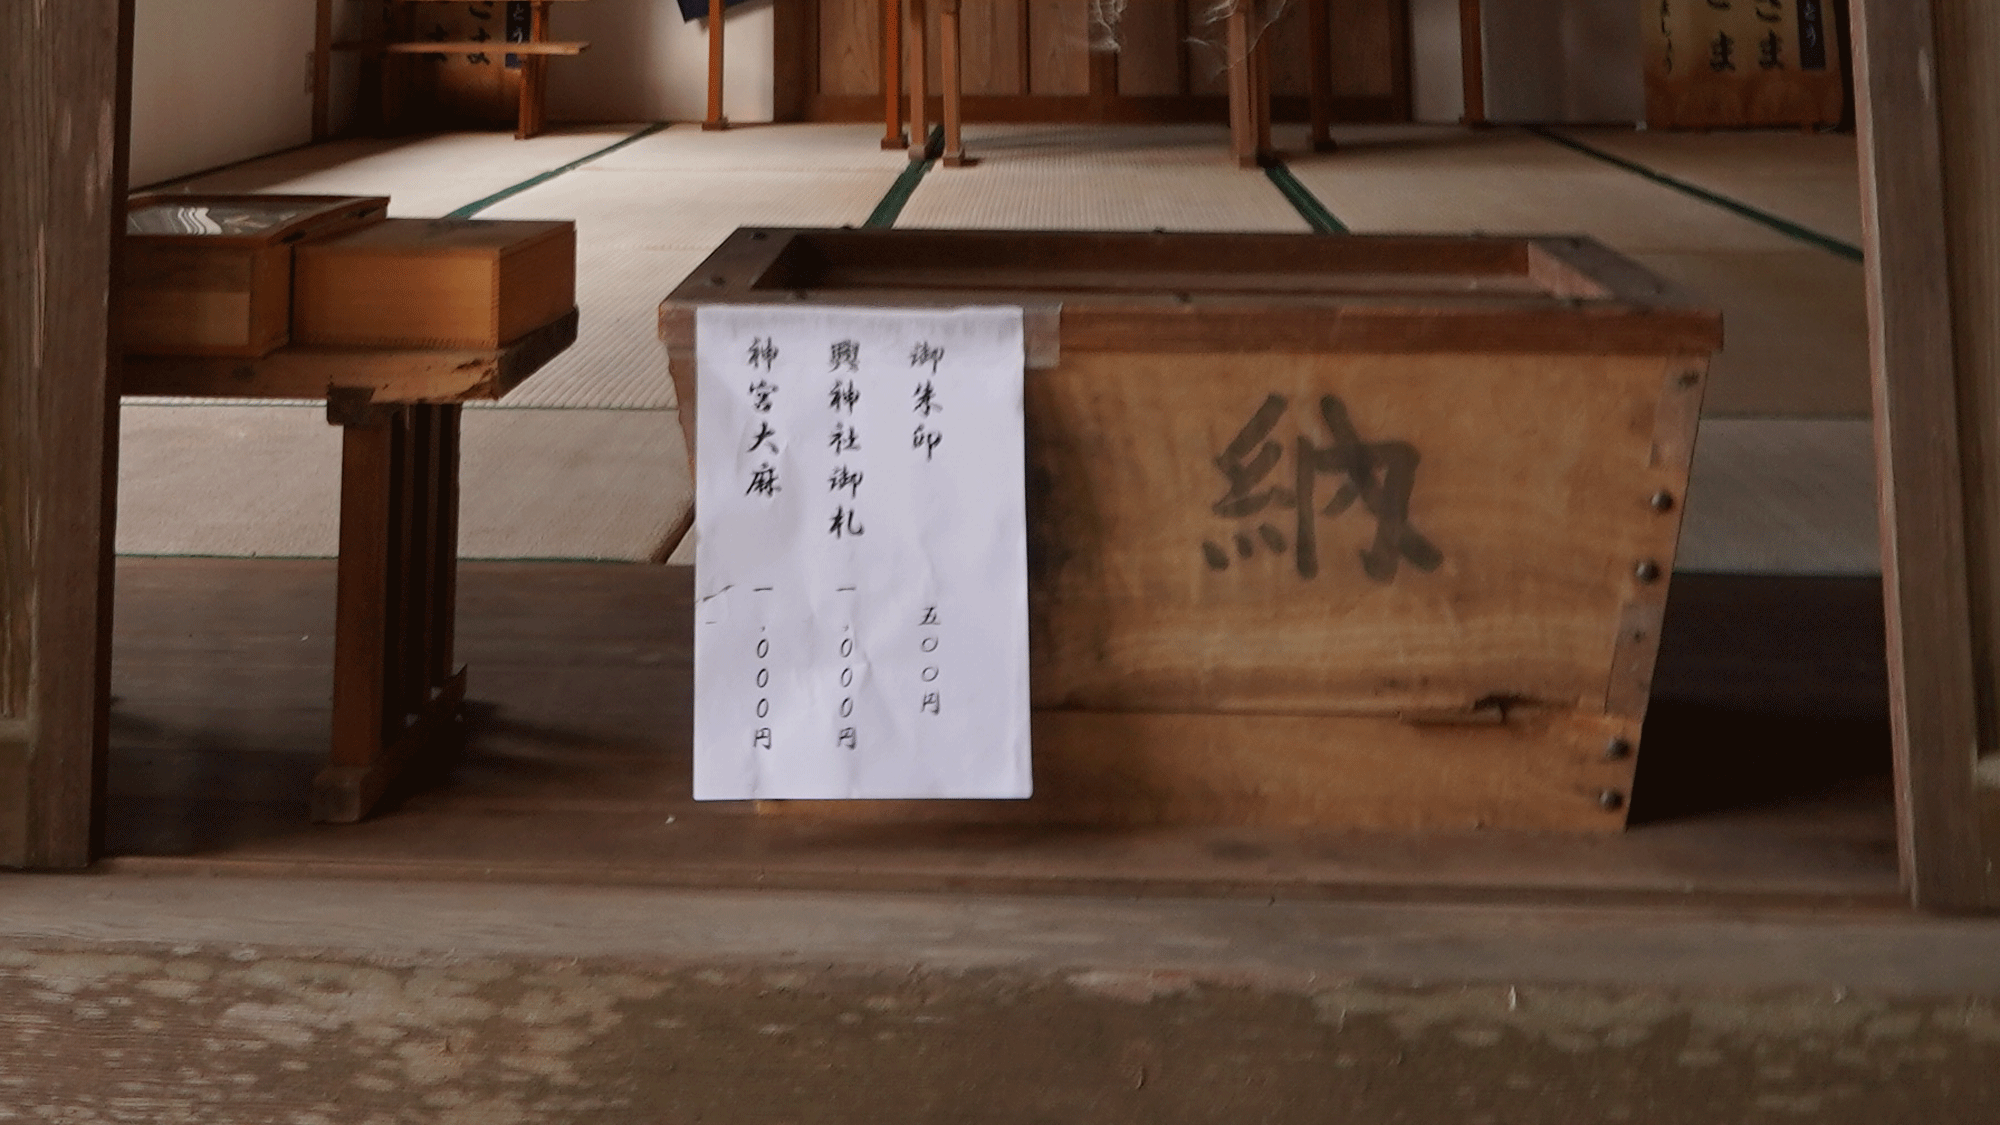 御朱印 五〇〇円
興神社御札 一、〇〇〇円
神宮大麻 一、〇〇〇円
納